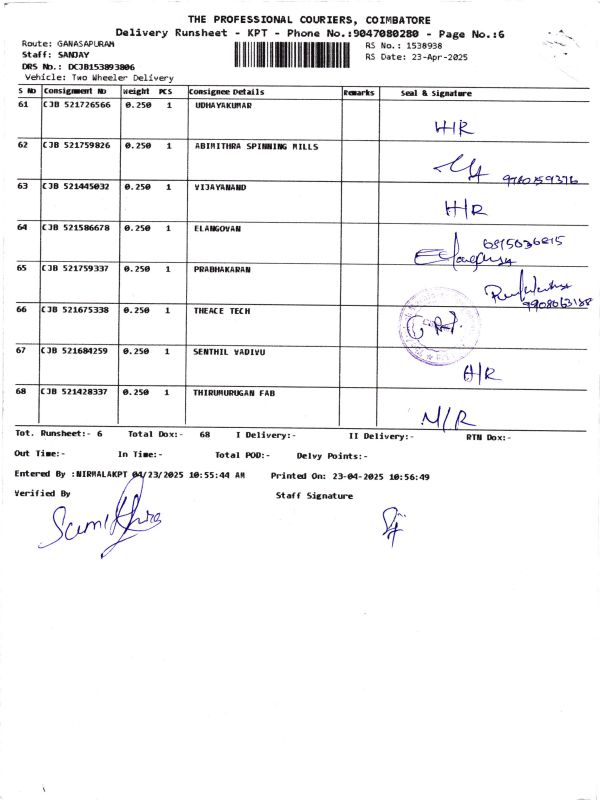 THE PROFESSIONAL COURIERS, COIMBATORE
Delivery Runsheet - KPT - Phone No.:9047080280 - Page No.:6
Route: GANASAPURAM
RS No.: 1538938
Staff: SANJAY
RS Date: 23-Apr-2025
DRS No.: DCJB153893806
Vehicle: Two Wheeler Delivery
S No Consignment No Weight PCS Consignee Details Remarks Seal & Signature
61 CJB 521726566 0.250 1 UDHAYAKUMAR H/R
62 CJB 521759826 0.250 1 ABIMITHRA SPINNING MILLS
63 CJB 521445032 0.250 1 VIJAYANAND H/R
64 CJB 521586678 0.250 1 ELANGOVAN
65 CJB 521759337 0.250 1 PRABHAKARAN
66 CJB 521675338 0.250 1 THEACE TECH
67 CJB 521684259 0.250 1 SENTHIL VADIVU H/R
68 CJB 521428337 0.250 1 THIRUMURUGAN FAB M/R
Tot. Runsheet:- 6 Total Dox:- 68 I Delivery:- II Delivery:- RTN Dox:-
Out Time:- In Time:- Total POD:- Delvy Points:-
Entered By :NIRMALAKPT 04/23/2025 10:55:44 AM Printed On: 23-04-2025 10:56:49
Verified By Staff Signature